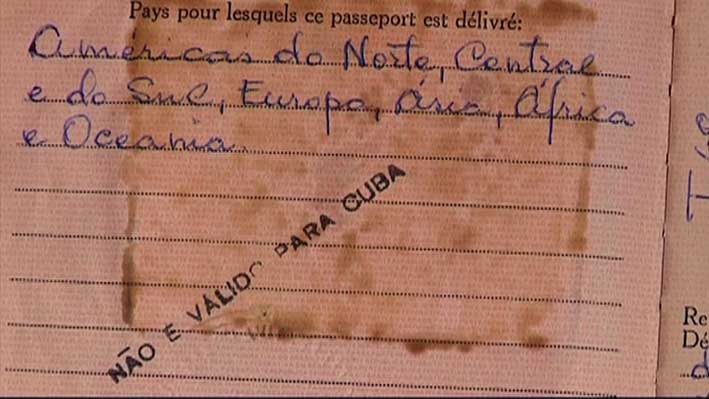 Pays pour lesquels ce passeport est délivré:
Américas do Norte, Central
e do Sul, Europa, Ásia, África
e Oceania.
NÃO E VÁLIDO PARA CUBA
Re
Dé